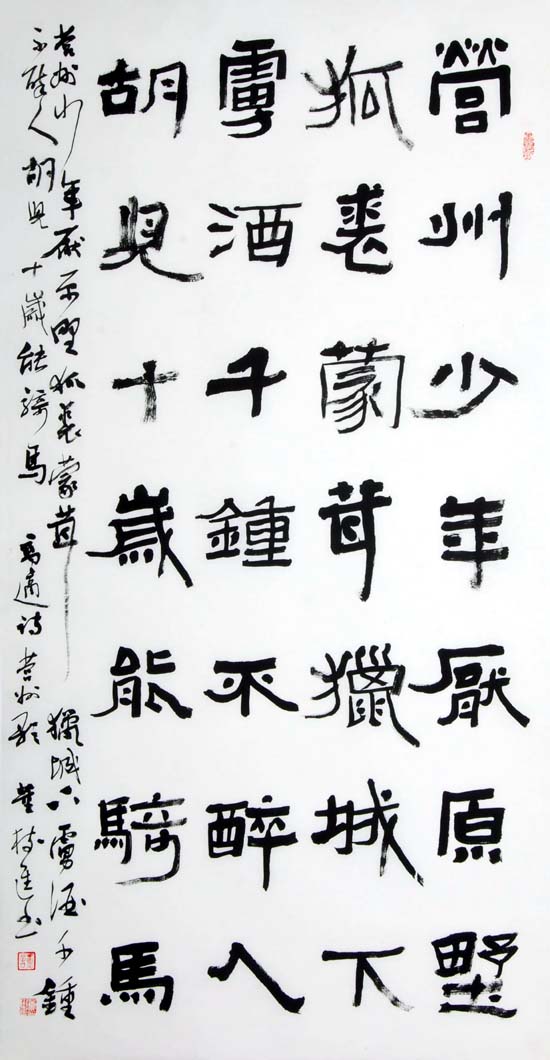 營州少年厭原野
狐裘蒙茸獵城下
虜酒千鍾不醉人
胡兒十歲能騎馬
營州少年厭原野狐裘蒙茸獵城下虜酒千鍾
不醉人胡兒十歲能騎馬 高適詩營州歌